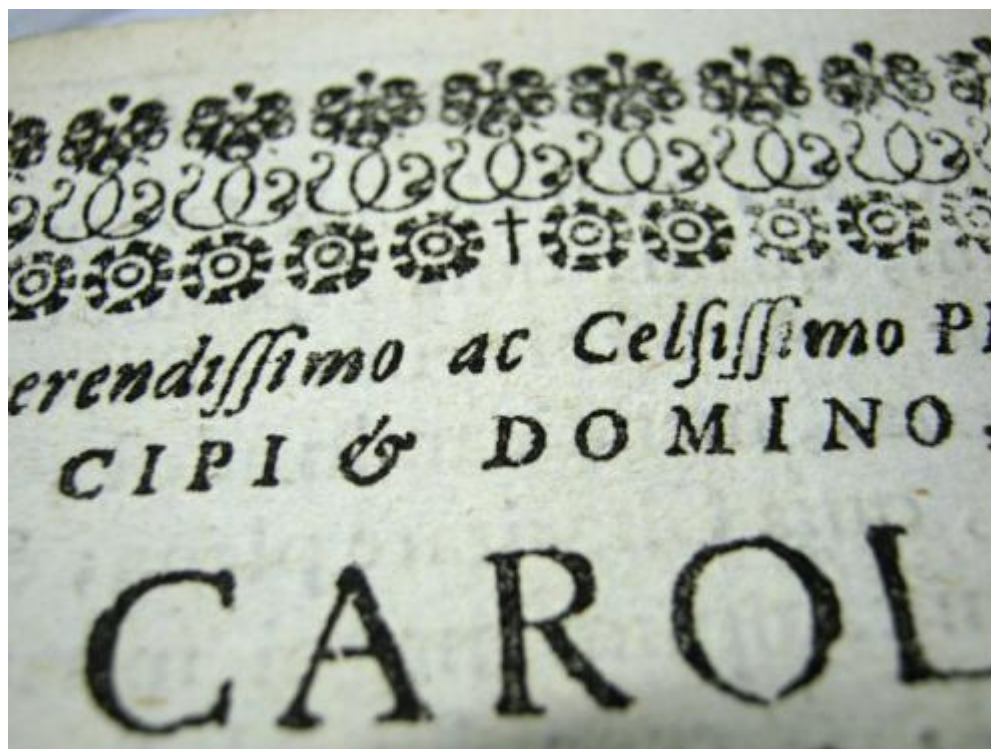 erendiſſimo ac Celſiſſimo PR
CIPI & DOMINO,
CAROL